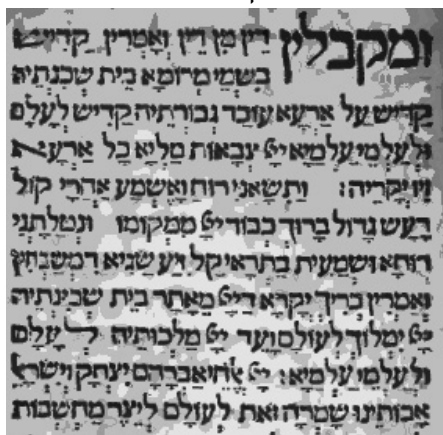 ומקבלין דין מן דין ואמרין קדיש
בשמי מרומא בית שכנתיה
קדיש על ארעא עובד גבורתיה קדיש לעלם
ולעלמי עלמיא ייי צבאות מליא כל ארעא
זיו יקריה: ותשאני רוח ואשמע אחרי קול
רעש גדול ברוך כבוד ייי ממקומו ונטלתני
רוחא ושמעית בתראי קל זיע שגיא דמשבחין
ואמרין בריך יקרא דייי מאתר בית שכינתיה
ייי ימלוך לעולם ועד ייי מלכותיה לעלם
ולעלמי עלמיא: ייי אלהי אברהם יצחק וישראל
אבותינו שמרה זאת לעולם ליצר מחשבות